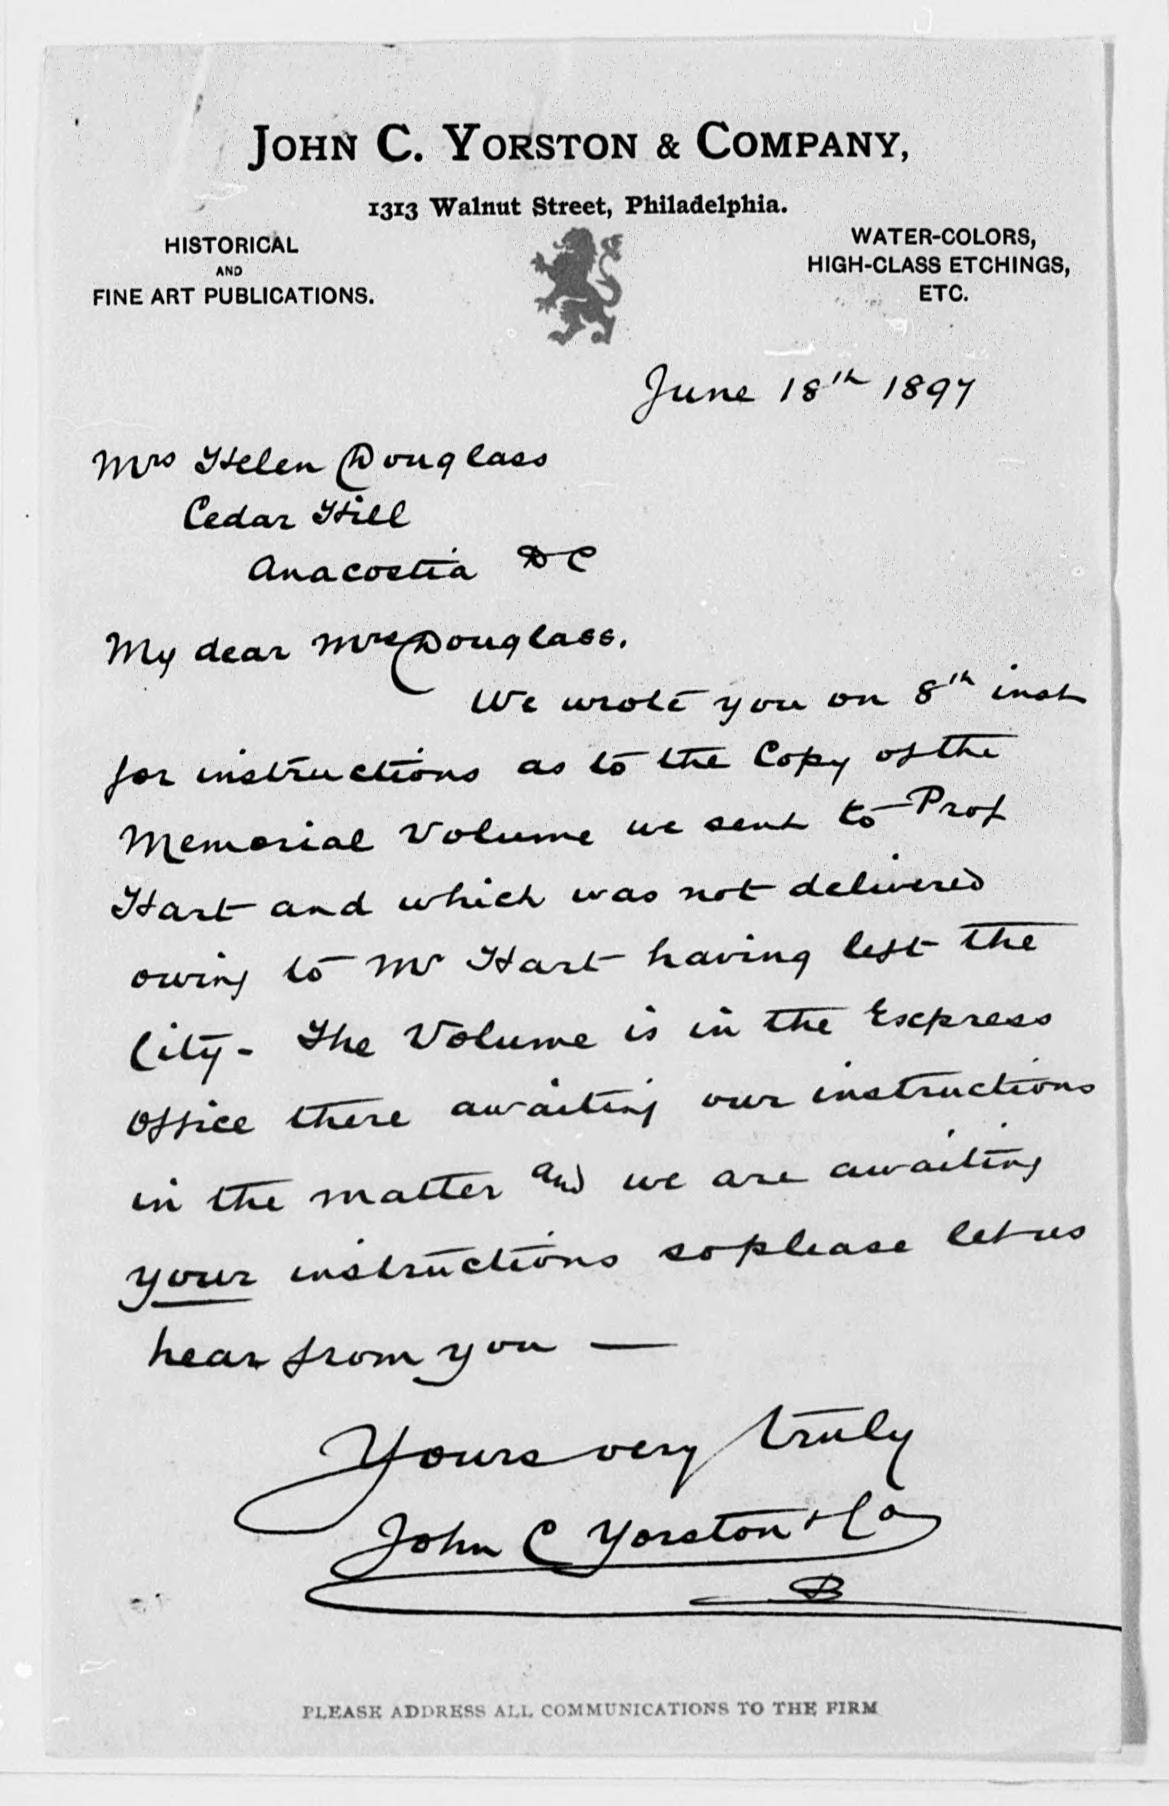 JOHN C. YORSTON & COMPANY,
1313 Walnut Street, Philadelphia.
HISTORICAL
AND
FINE ART PUBLICATIONS.
WATER-COLORS,
HIGH-CLASS ETCHINGS,
ETC.
June 18th 1897
Mrs Helen Douglass
Cedar Hill
Anacostia DC
My dear Mrs Douglass.
We wrote you on 8th inst
for instructions as to the Copy of the
Memorial Volume we sent to Prof
Hart and which was not delivered
owing to Mr Hart having left the
City - The Volume is in the Express
Office there awaiting our instructions
in the matter and we are awaiting
your instructions so please let us
hear from you —
Yours very truly
John C Yorston & Co
B
PLEASE ADDRESS ALL COMMUNICATIONS TO THE FIRM